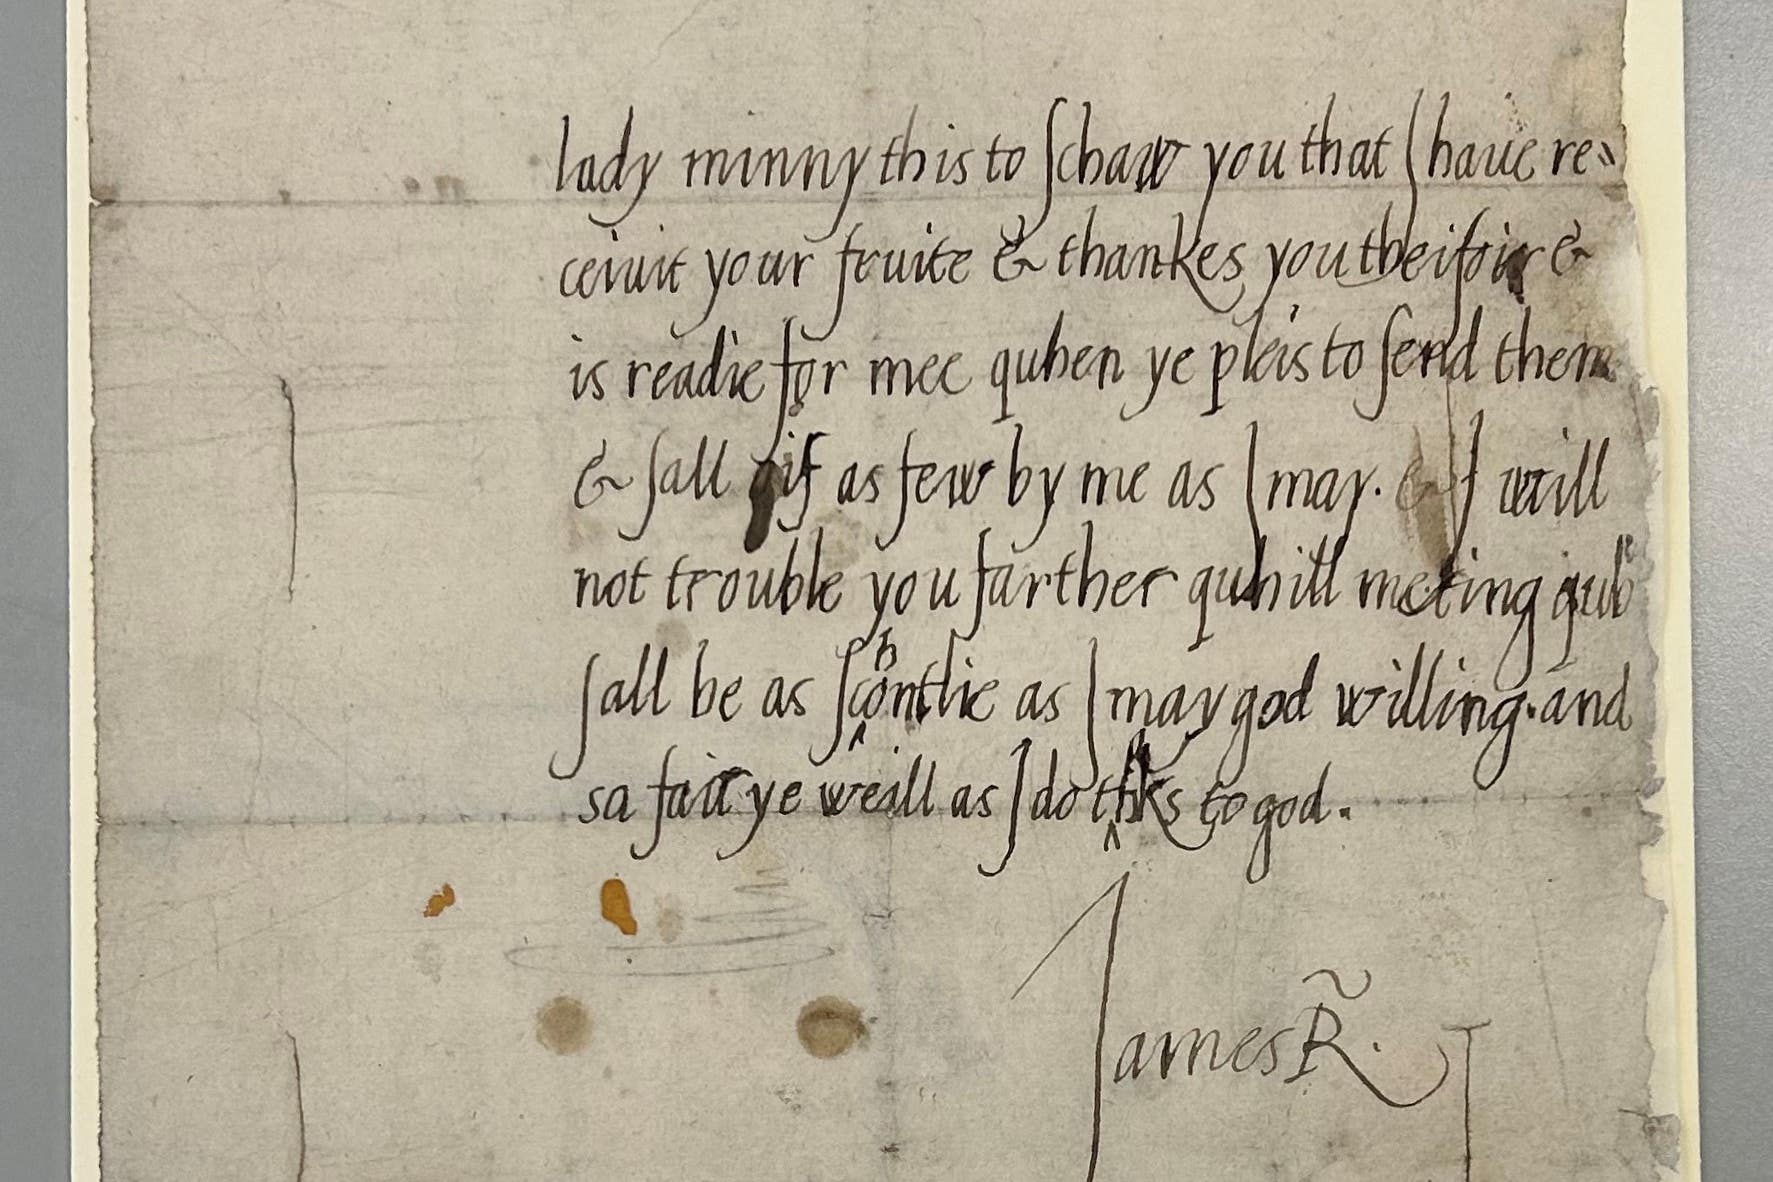 lady minny this to schaw you that I haue re⸗
ceiuit your fruite & thankes you theifoir &
is readie for mee quhen ye pleis to send them
& sall gif as few by me as I may. & I will
not trouble you farther quhill meting quh
sall be as schortlie as I may god willing. and
sa fair ye weill as I do to god.
James R.